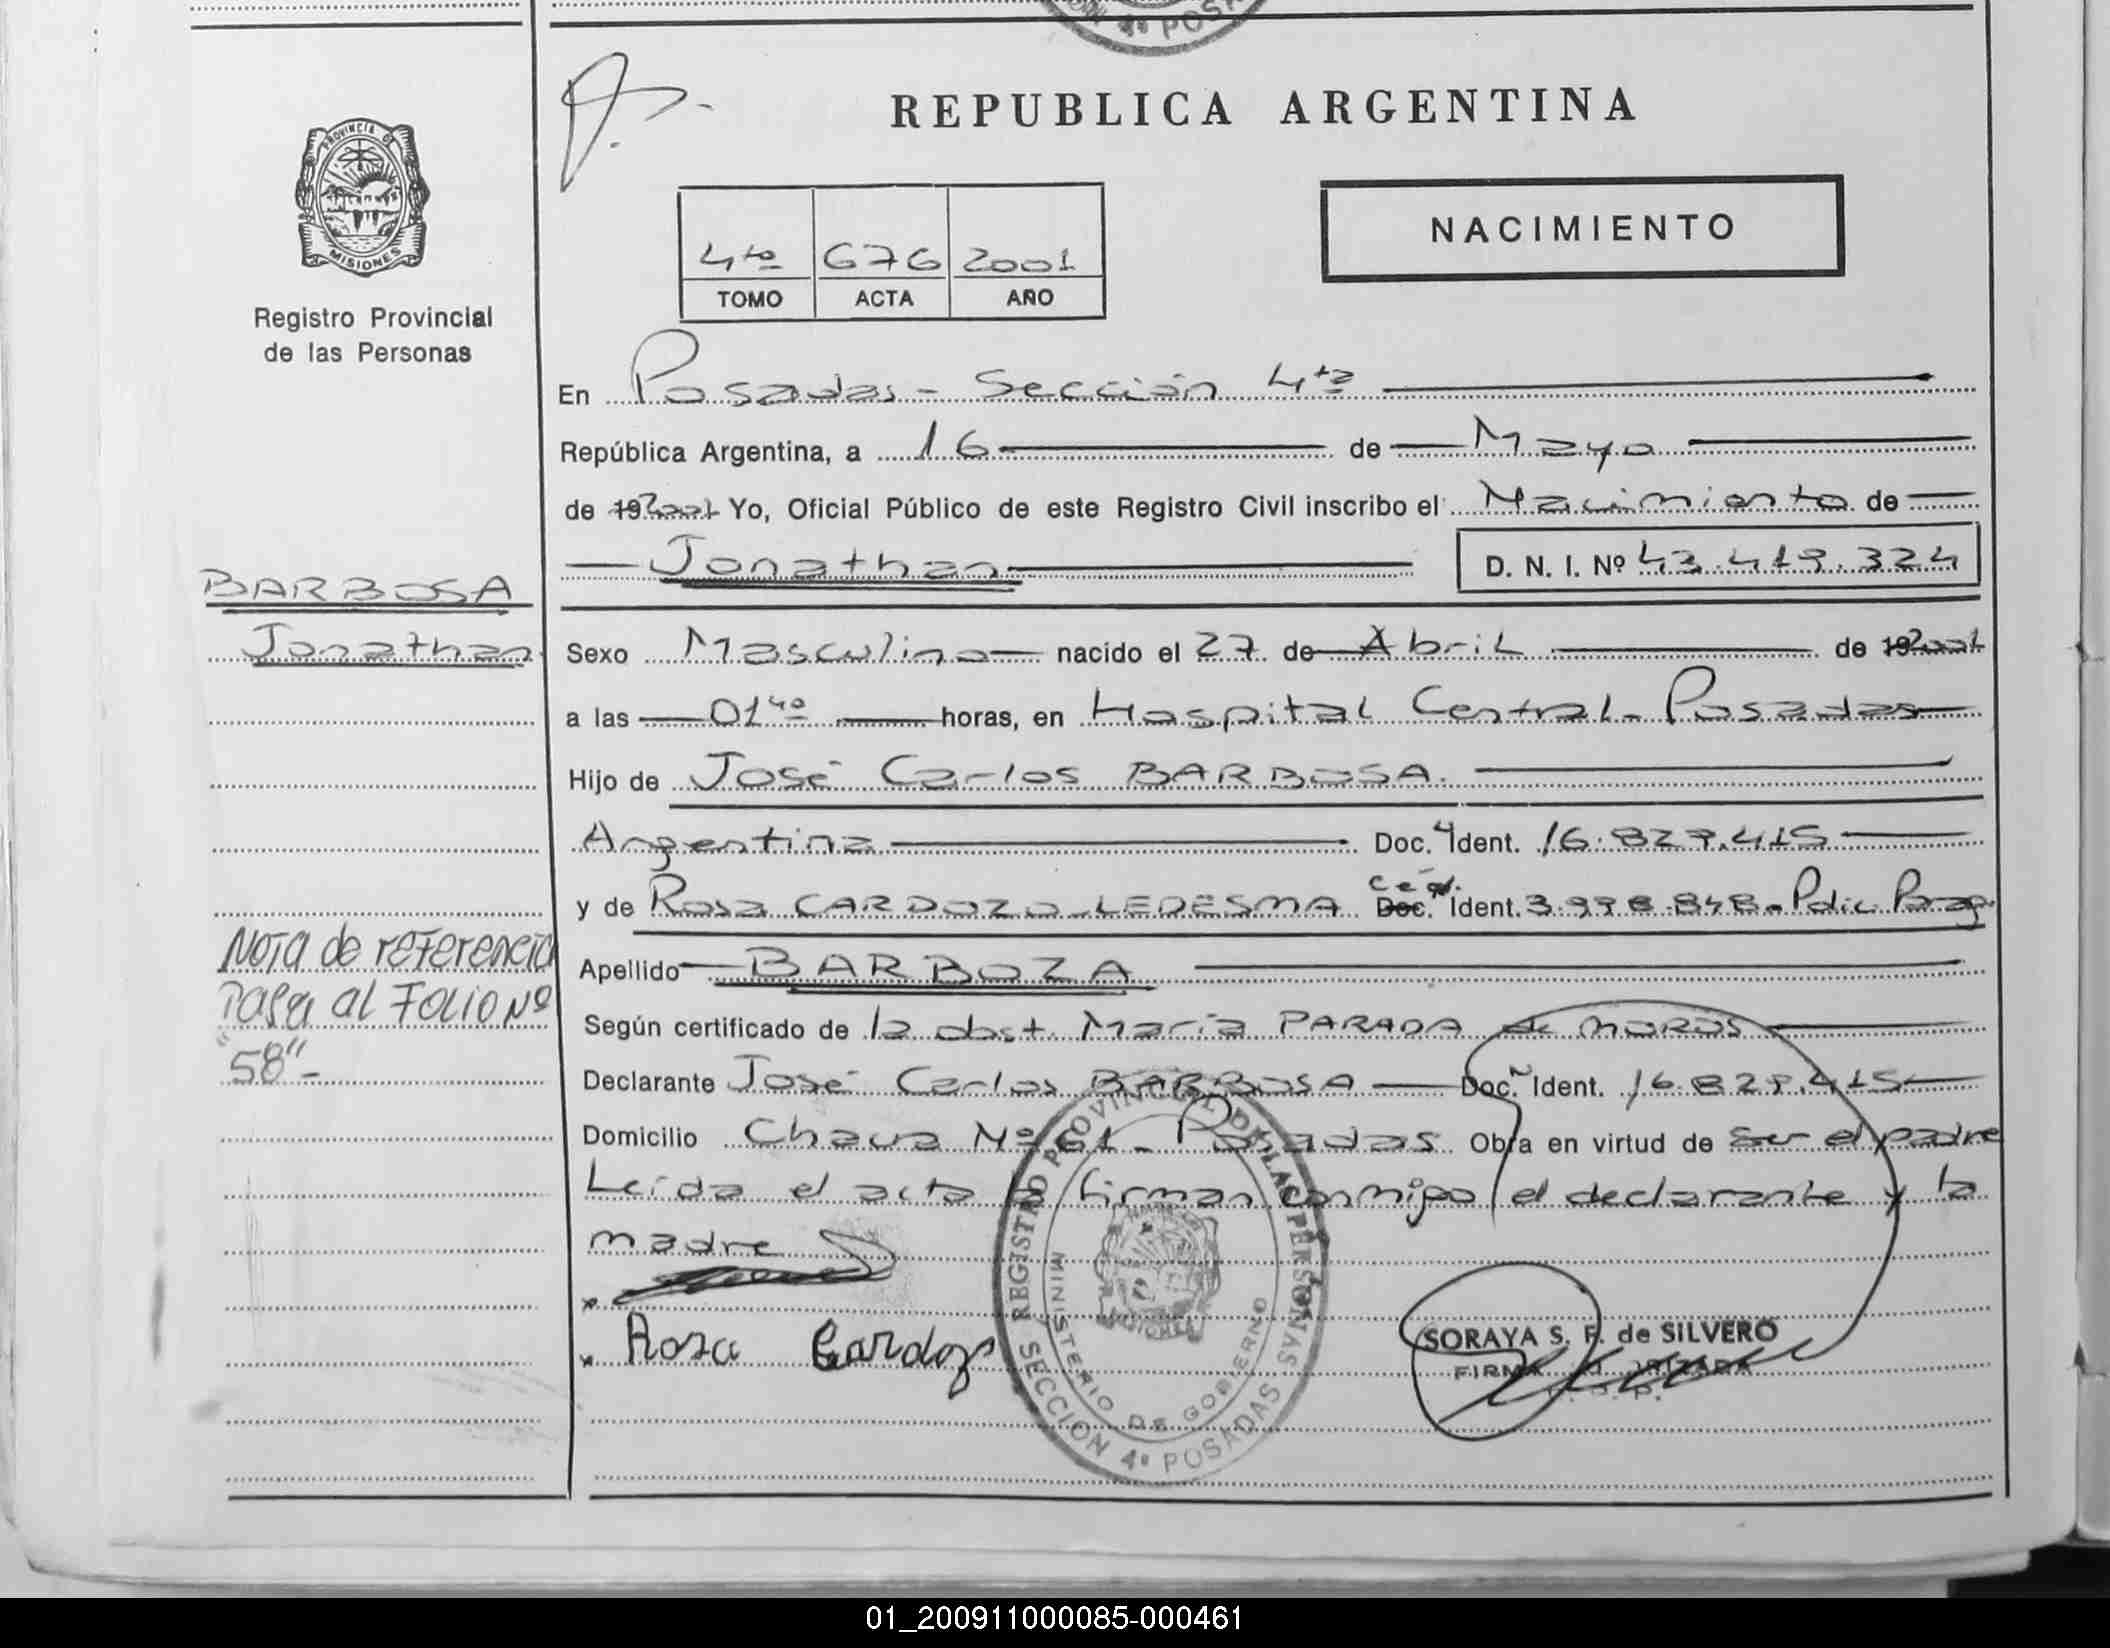 Nº 4º POSA
REPUBLICA ARGENTINA
PROVINCIA DE
MISIONES
Registro Provincial
de las Personas
4to 676 2001
TOMO ACTA AÑO
NACIMIENTO
En Posadas - Sección 4ta
República Argentina, a 16 de Mayo
de 19 2001 Yo, Oficial Público de este Registro Civil inscribo el Nacimiento de
Jonathan D. N. I. Nº 43.419.324
BARBOSA
Jonathan
Sexo Masculino nacido el 27 de Abril de 19 2001
a las 01 40 horas, en Hospital Central - Posadas
Hijo de José Carlos BARBOSA.
Argentina Doc. Ident. 16.829.415
y de Rosa CARDOZO LEDESMA Doc. Céd. Ident. 3.998.848 - Polic. Parag.
Nota de referencia
Pasa al Folio Nº
"58" -
Apellido BARBOZA
Según certificado de la obst. María PARADA de MOROS
Declarante José Carlos BARBOSA Doc. Ident. 16.829.415
Domicilio Chacra Nº 61 - Posadas Obra en virtud de ser el padre
Leída el acta la firman conmigo el declarante y la
madre
Rosa Cardozo
REGISTRO PROVINCIAL DE LAS PERSONAS
MINISTERIO DE GOBIERNO
SECCION 4º POSADAS
SORAYA S. F. de SILVERO
FIRMA AUTORIZADA
01_200911000085-000461